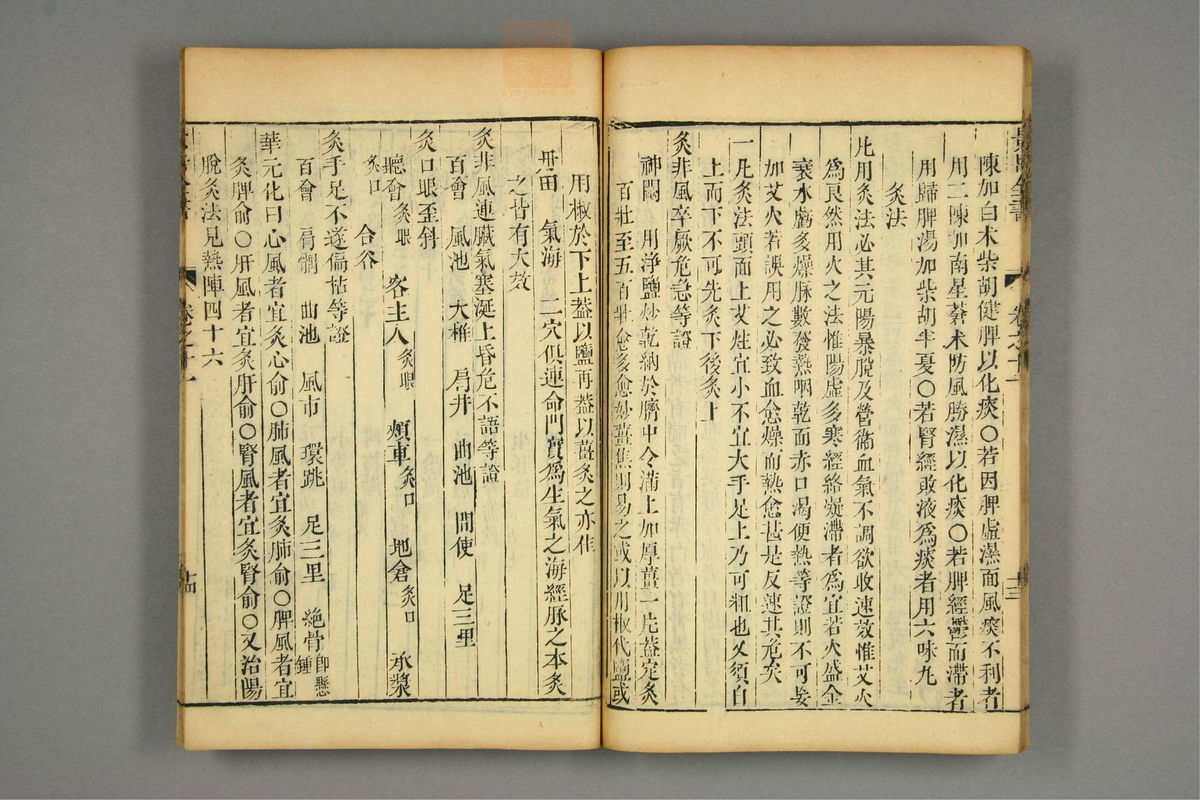 陳加白朮柴胡健脾以化痰〇若因脾虛濕而風痰不利者
用二陳加南星蒼朮防風勝濕以化痰〇若脾經鬱而滯者
用歸脾湯加柴胡半夏〇若腎經敗液為痰者用六味丸
灸法
凡用灸法必其元陽暴脫及營衛血氣不調欲收速效惟艾火
為良然用火之法惟陽虛多寒經絡凝滯者為宜若火盛金
衰水虧多燥脉數發熱咽乾面赤口渴便熱等證則不可妄
加艾火若誤用之必致血愈燥而熱愈甚是反速其危矣
一凡灸法頭面上艾炷宜小不宜大手足上乃可粗也又須自
上而下不可先灸下後灸上
灸非風卒厥危急等證
神闕 用淨鹽炒乾納於臍中令滿上加厚薑一片蓋定灸
百壯至五百壯愈多愈妙薑焦則易之或以川椒代鹽或
用椒於下上蓋以鹽再蓋以薑灸之亦佳
丹田 氣海 二穴俱連命門實為生氣之海經脉之本灸
之皆有大效
灸非風連臟氣塞涎上昏危不語等證
百會 風池 大椎 肩井 曲池 間使 足三里
灸口眼歪斜
聽會灸眼 客主人灸眼 頰車灸口 地倉灸口 承漿
灸口 合谷
灸手足不遂偏枯等證
百會 肩髃 曲池 風市 環跳 足三里 絶骨即懸鍾
華元化曰心風者宜灸心俞〇肺風者宜灸肺俞〇脾風者宜
灸脾俞〇肝風者宜灸肝俞〇腎風者宜灸腎俞〇又治陽
脫灸法見熱陣四十六
卷之十一